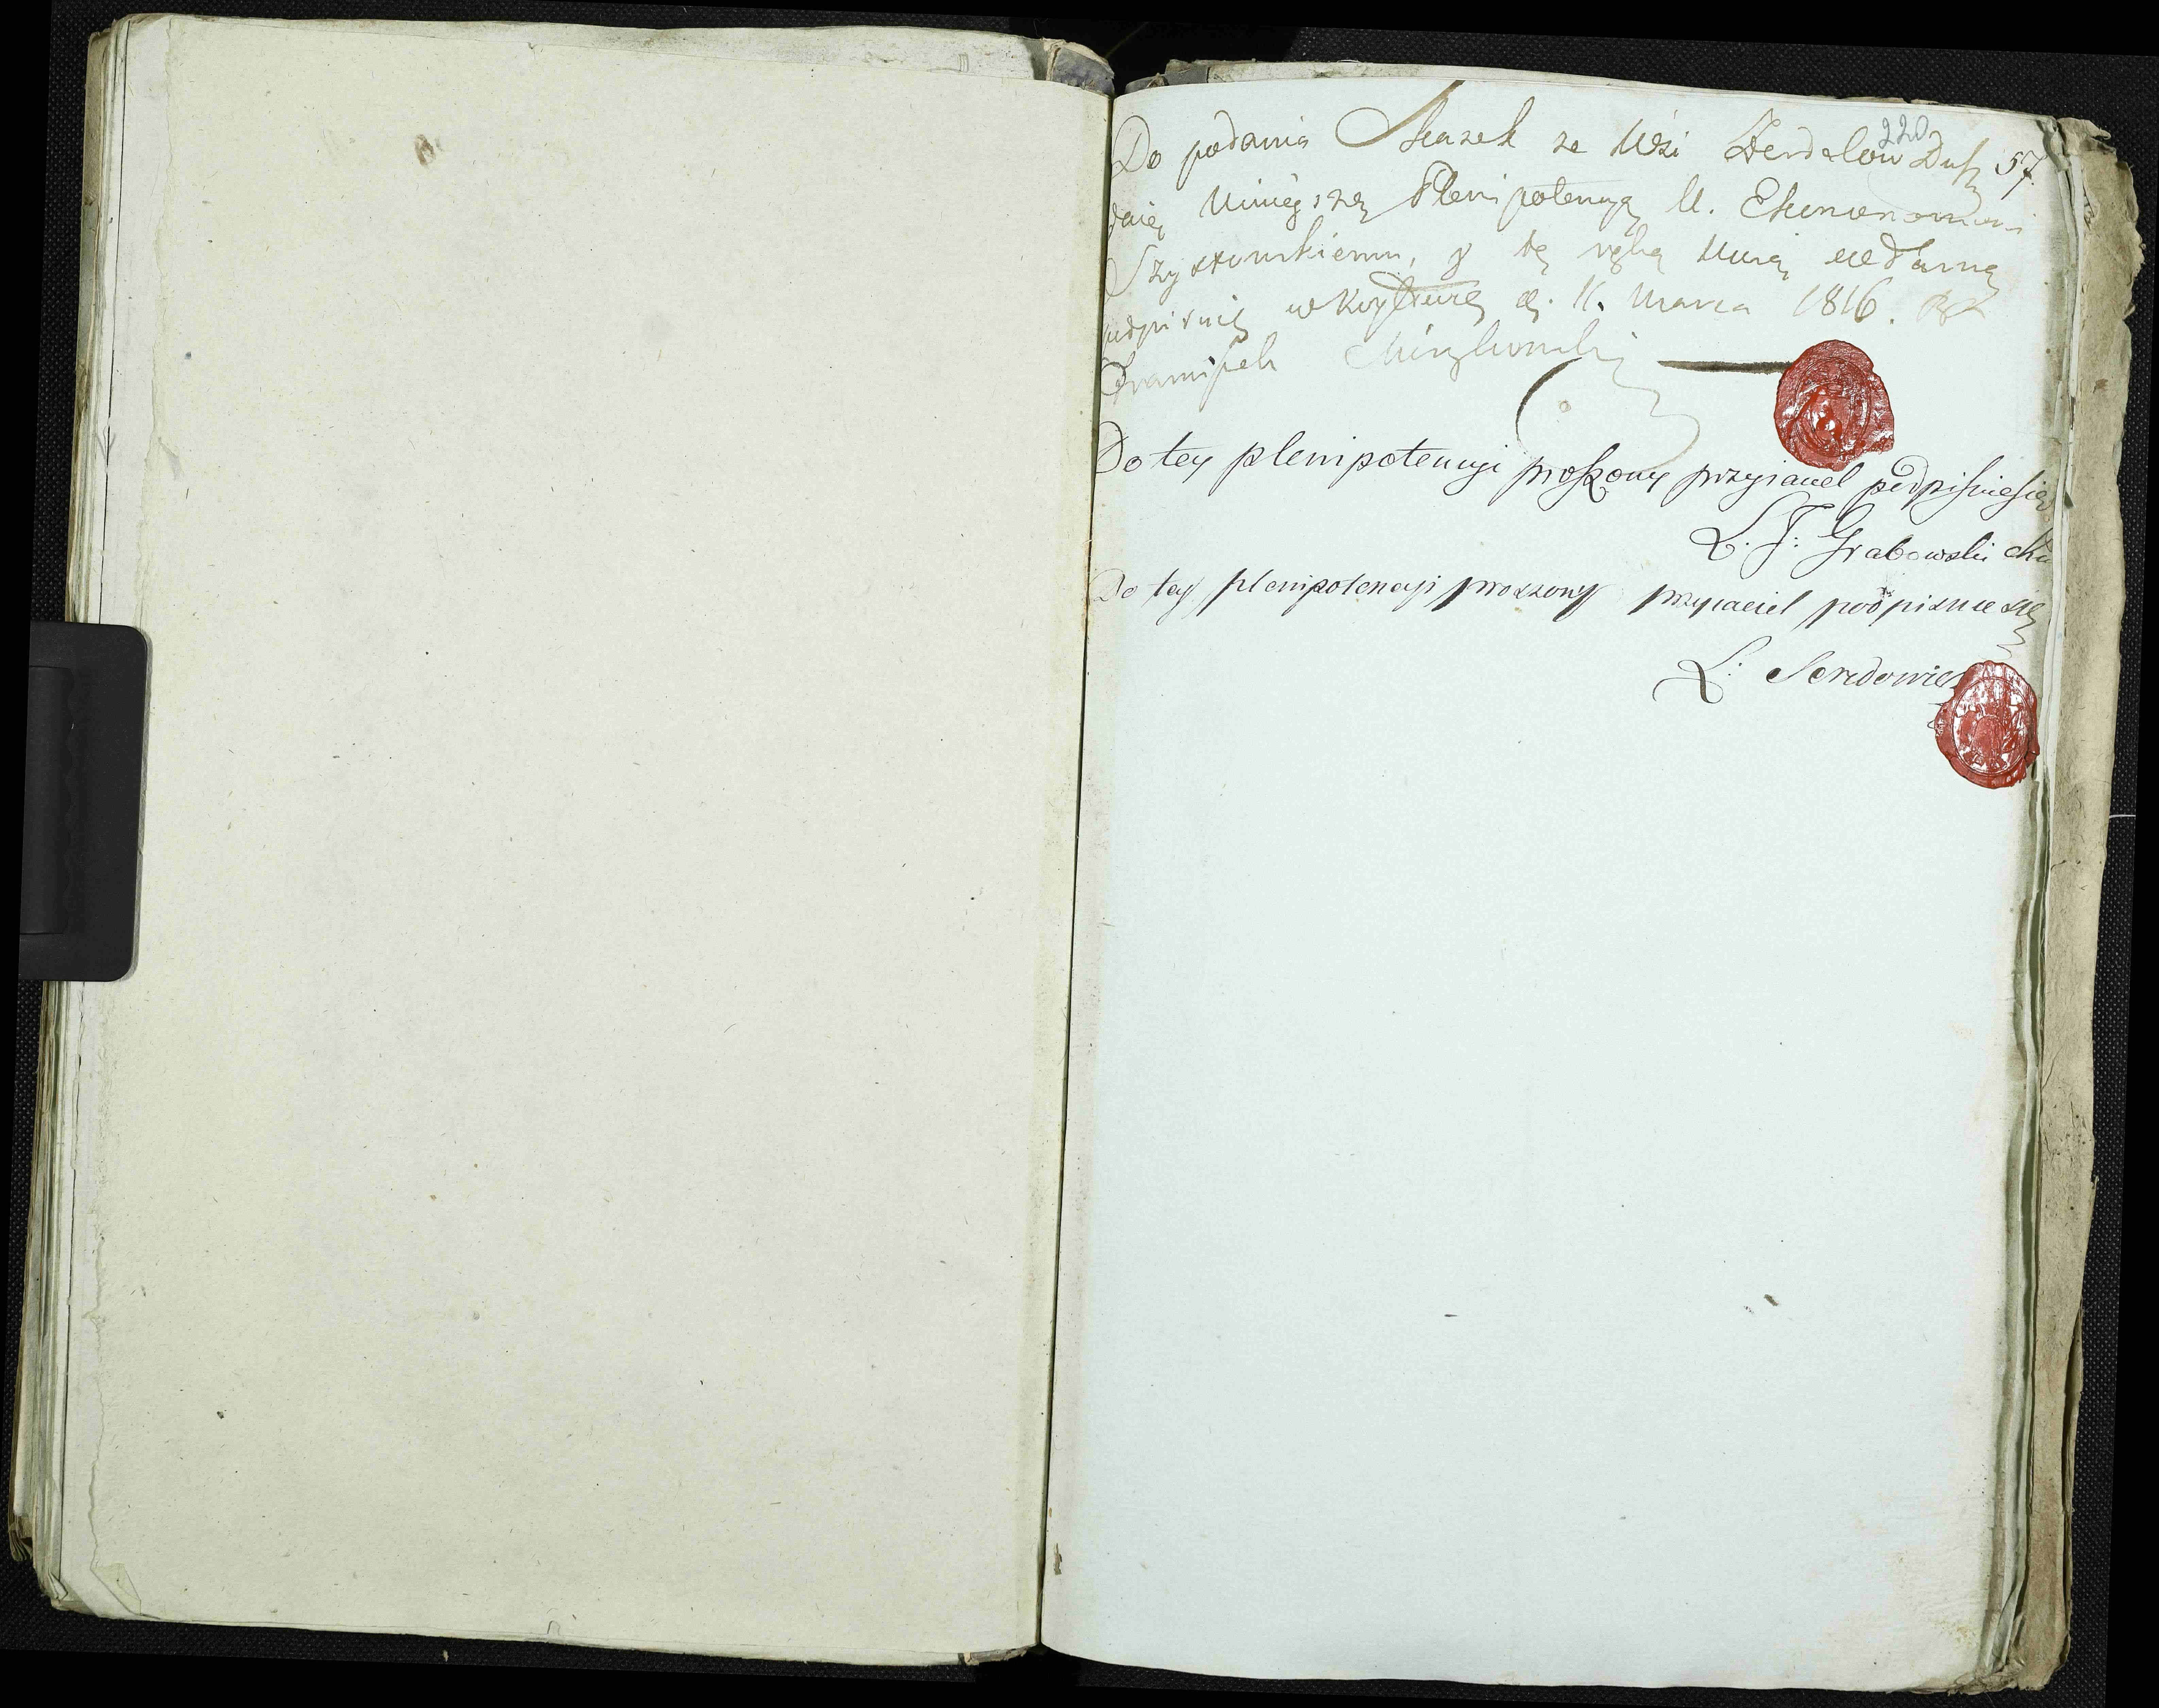 220
Do podania Skazek ze Wsi Dusz 57.
daię Ninieyszą Plenipotencyą U. Ekonomowi
Szystowskiemu, y tę ręką Moią własną
podpisuię d. 11. Marca 1816. R
Franciszek
Do tey plenipotencyi proszony przyiaciel podpisuie się
L. J: Grabowski
Do tey plenipotencyi proszony przyiaciel podpisuie się
L: